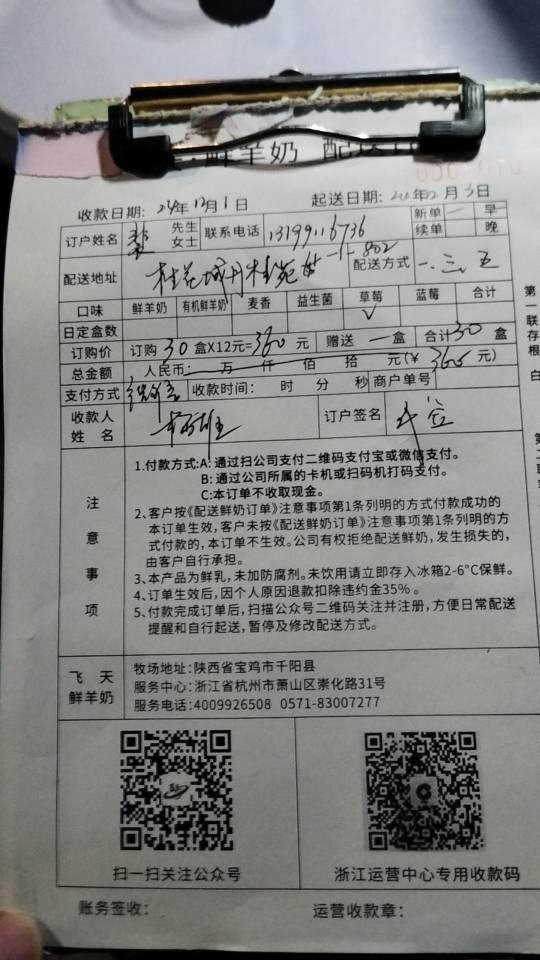 鲜羊奶 配送
收款日期: 24年12月1日 起送日期: 年12月3日
订户姓名 先生 女士 联系电话 13199116736 新单 一 早
续单 晚
配送地址 桂花城丹桂苑 -1-802 配送方式 一、三、五
口味 鲜羊奶 有机鲜羊奶 麦香 益生菌 草莓 蓝莓 合计
日定盒数 √
订购价 订购30盒X12元=360元 赠送 一 盒 合计30盒
总金额 人民币: 万 仟 佰 拾 元(¥ 360元)
支付方式 收款时间: 时 分 秒 商户单号
收款人 姓名 订户签名
注意事项
1.付款方式:A: 通过扫公司支付二维码支付宝或微信支付。
B: 通过公司所属的卡机或扫码机打码支付。
C:本订单不收取现金。
2、客户按《配送鲜奶订单》注意事项第1条列明的方式付款成功的
本订单生效,客户未按《配送鲜奶订单》注意事项第1条列明的方
式付款的,本订单不生效。公司有权拒绝配送鲜奶,发生损失的,
由客户自行承担。
3、本产品为鲜乳,未加防腐剂。未饮用请立即存入冰箱2-6°C保鲜。
4、订单生效后,因个人原因退款扣除违约金35%。
5、付款完成订单后,扫描公众号二维码关注并注册,方便日常配送
提醒和自行起送,暂停及修改配送方式。
飞天 鲜羊奶
牧场地址:陕西省宝鸡市千阳县
服务中心:浙江省杭州市萧山区崇化路31号
服务电话:4009926508 0571-83007277
扫一扫关注公众号 浙江运营中心专用收款码
账务签收: 运营收款章:
第一联存根 白
第二